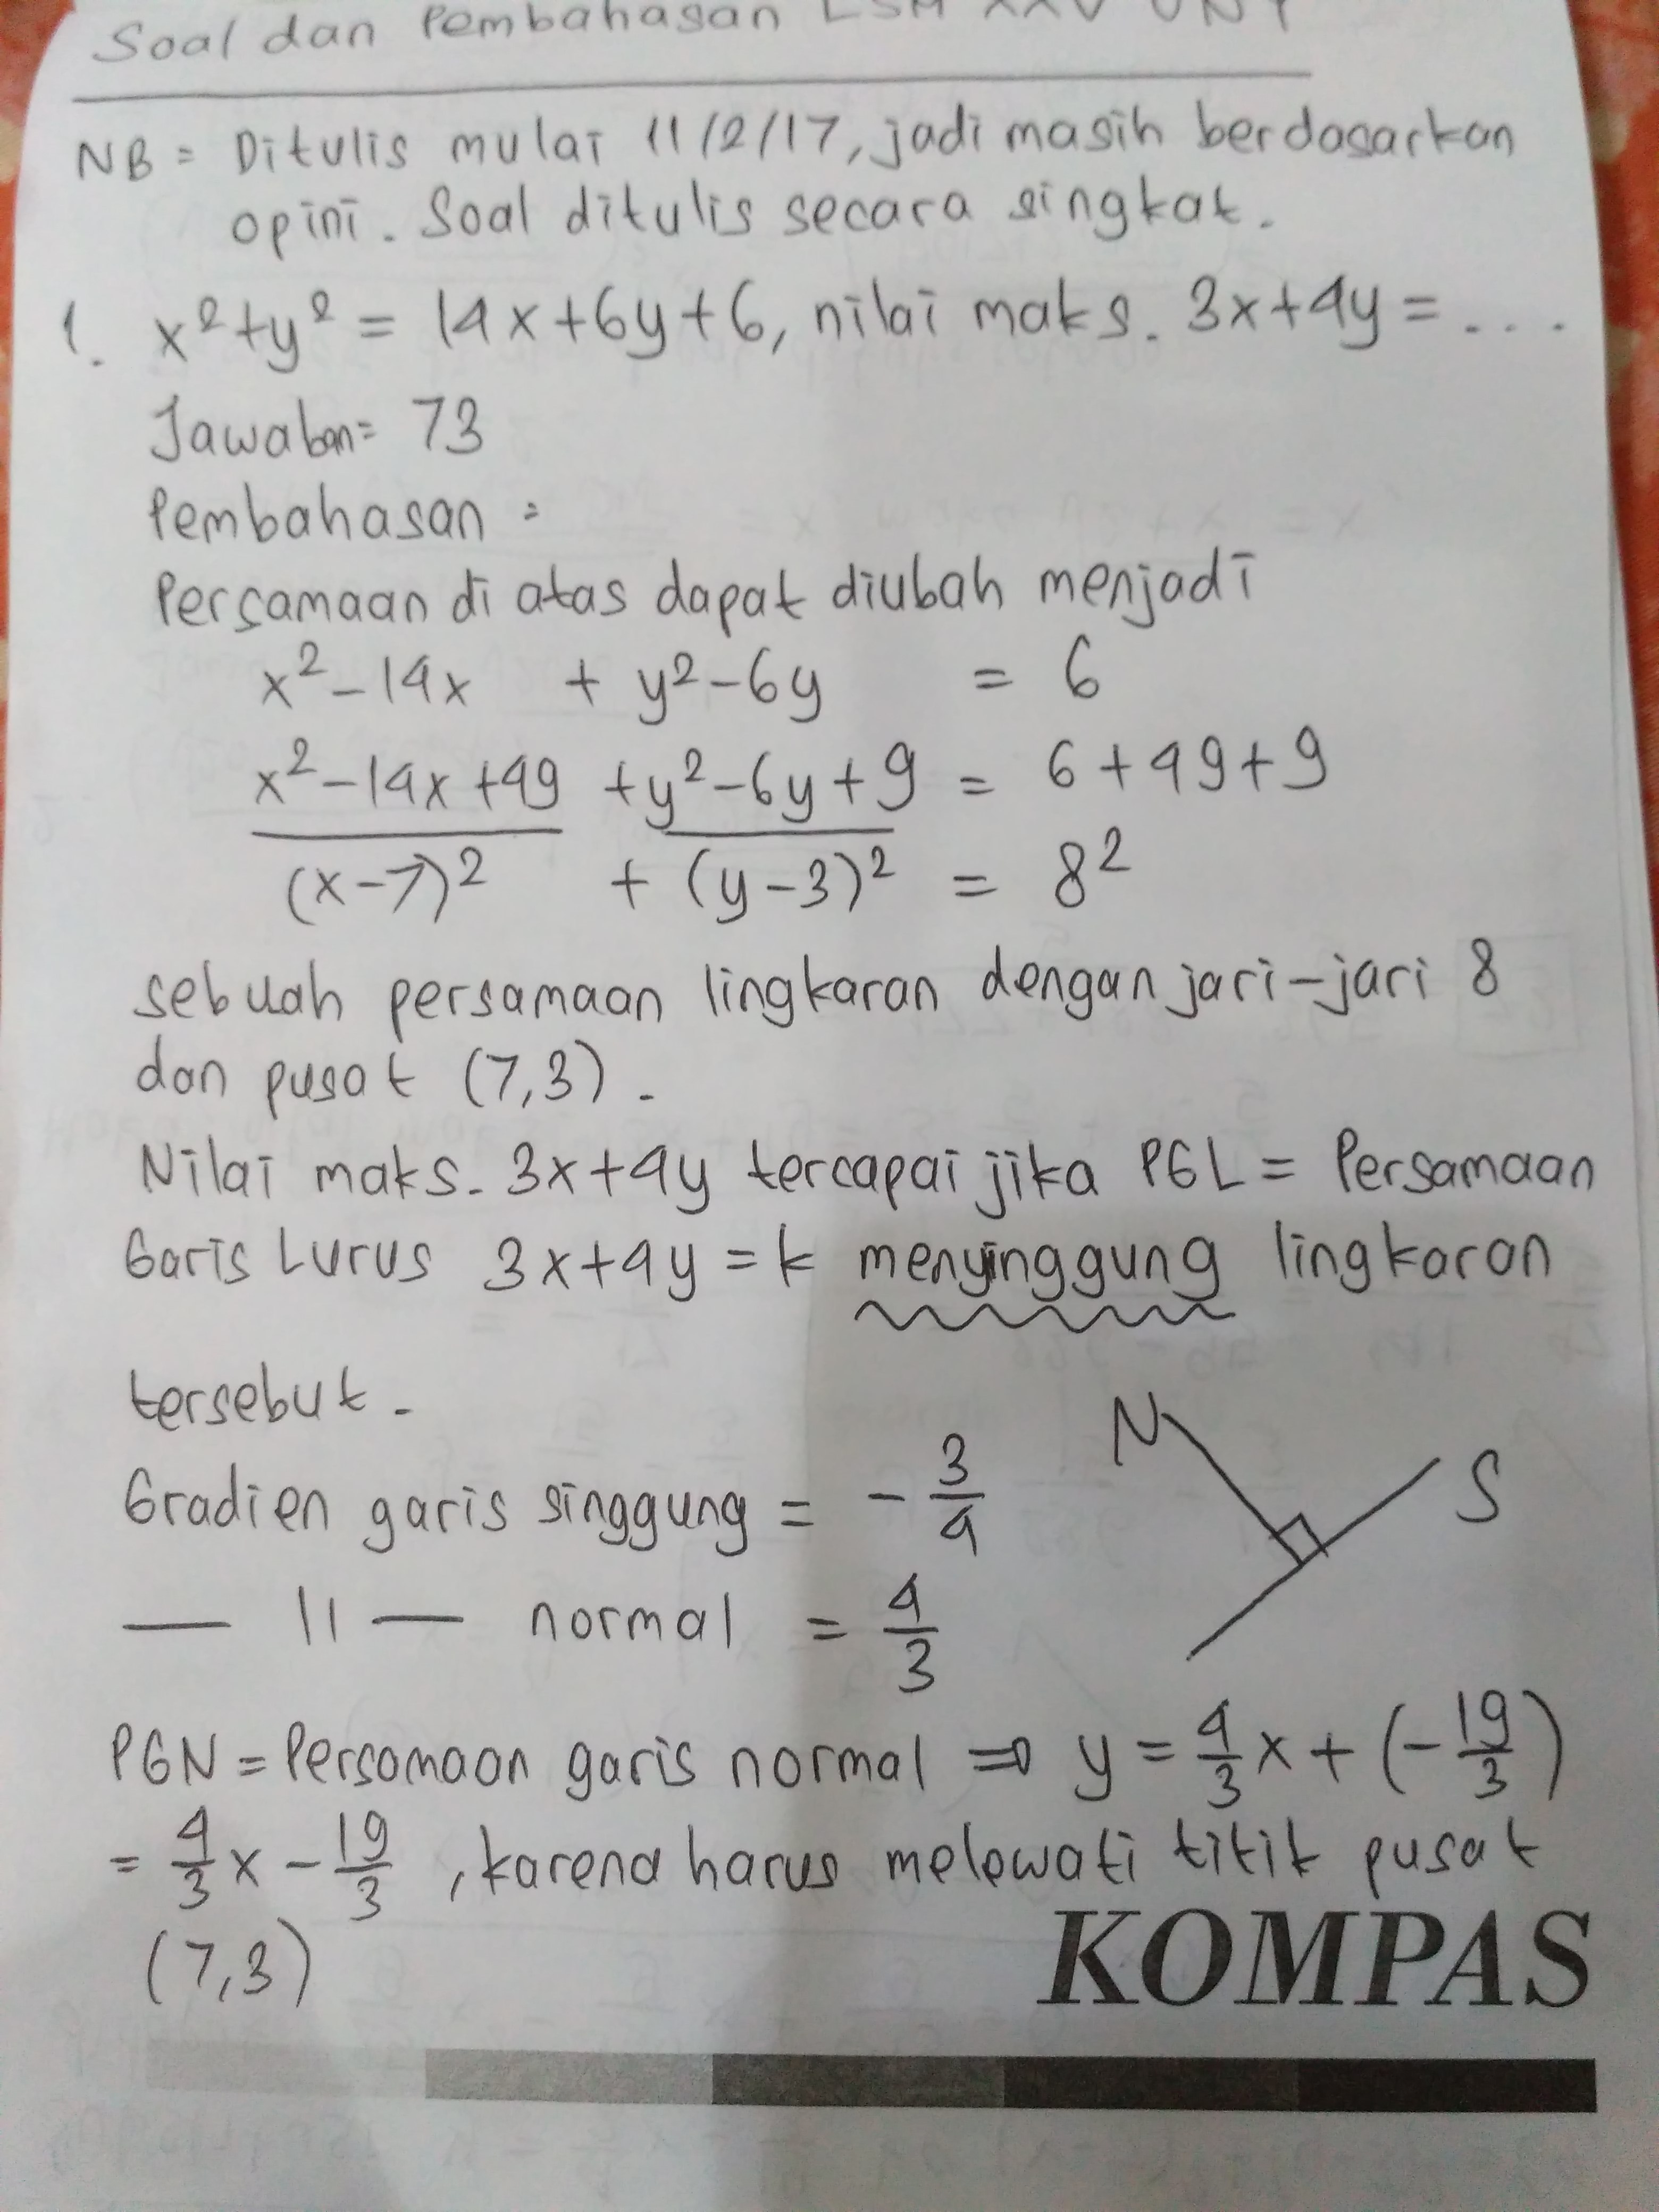 Soal dan Pembahasan LSM XXV UNY
NB = Ditulis mulai 11/2/17, jadi masih berdasarkan
opini. Soal ditulis secara singkat.
1. x²+y² = 14x+6y+6, nilai maks. 3x+4y = ...
Jawaban = 73
Pembahasan =
Persamaan di atas dapat diubah menjadi
x²-14x + y²-6y = 6
x²-14x+49 + y²-6y+9 = 6+49+9
(x-7)² + (y-3)² = 8²
sebuah persamaan lingkaran dengan jari-jari 8
dan pusat (7,3).
Nilai maks. 3x+4y tercapai jika PGL = Persamaan
Garis Lurus 3x+4y = k menyinggung lingkaran
tersebut.
Gradien garis singgung = -3/4
— 11 — normal = 4/3
N
S
PGN = Persamaan garis normal ⇒ y = 4/3 x + (-19/3)
= 4/3 x - 19/3, karena harus melewati titik pusat
(7,3)
KOMPAS